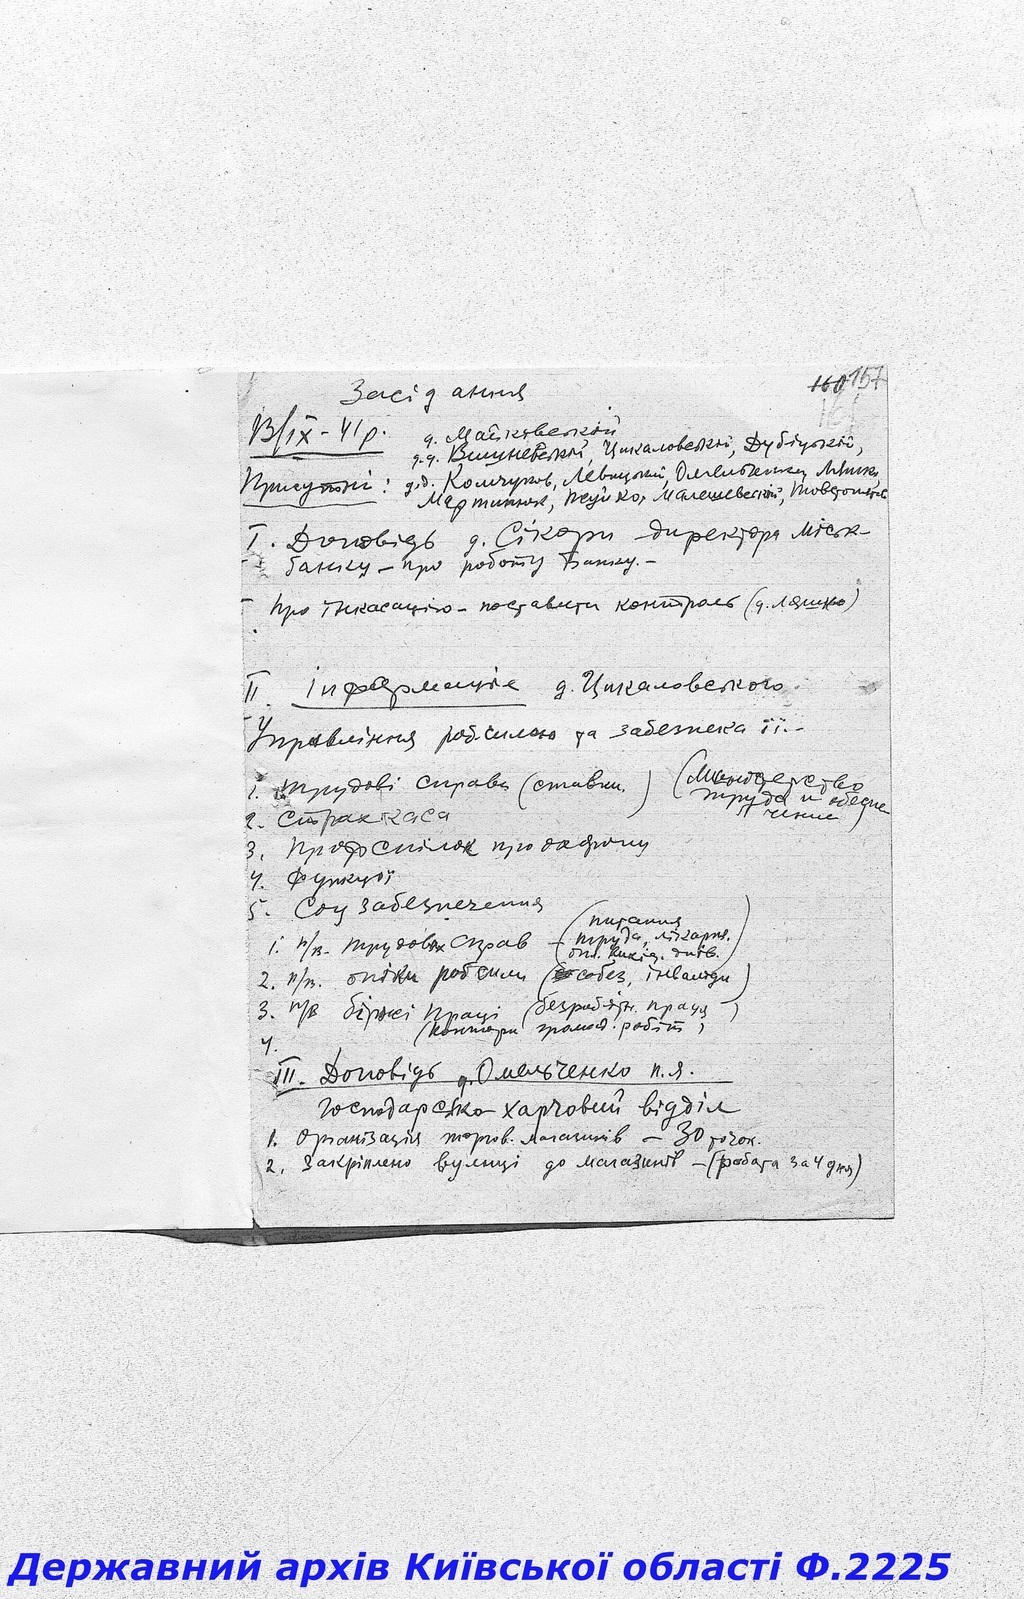 Засідання
160 157
13/IX-41 р.
д. Майковський
д.д. Вишневський, Цикаловський, Дубіцький,
Присутні: д.д. Комчуков, Левицький, Омельченко, Ляшко
Мартинюк, Малешевський,
I. Доповідь д. Сікори - директора Міськ-
банку - про роботу Банку. -
Про інкасацію - поставити контроль (д. Ляшко)
II Інформація д. Цикаловського.
Управління роб. силою та забезпека її. -
1. Трудові справи (ставки.) (Министерство
труда и обеспе
чения)
2. Страхкаса
3. Профспілок про охорону
4. Функції
5. Соц забезпечення
1. п/в. трудових справ - (питання
труда, лікарня.
2. п/в. опіки робсили (собез, інваліди)
3. п/в біржі Праці (безробітн. праця
(контори громад. робіт)
4.
III. Доповідь д. Омельченко п.я.
Господарсько-харчовий відділ
1. Організація торгов. магазинів - 30 точок.
2. Закріплено вулиці до магазинів - (робота за 4 дня)
Державний архів Київської області Ф.2225